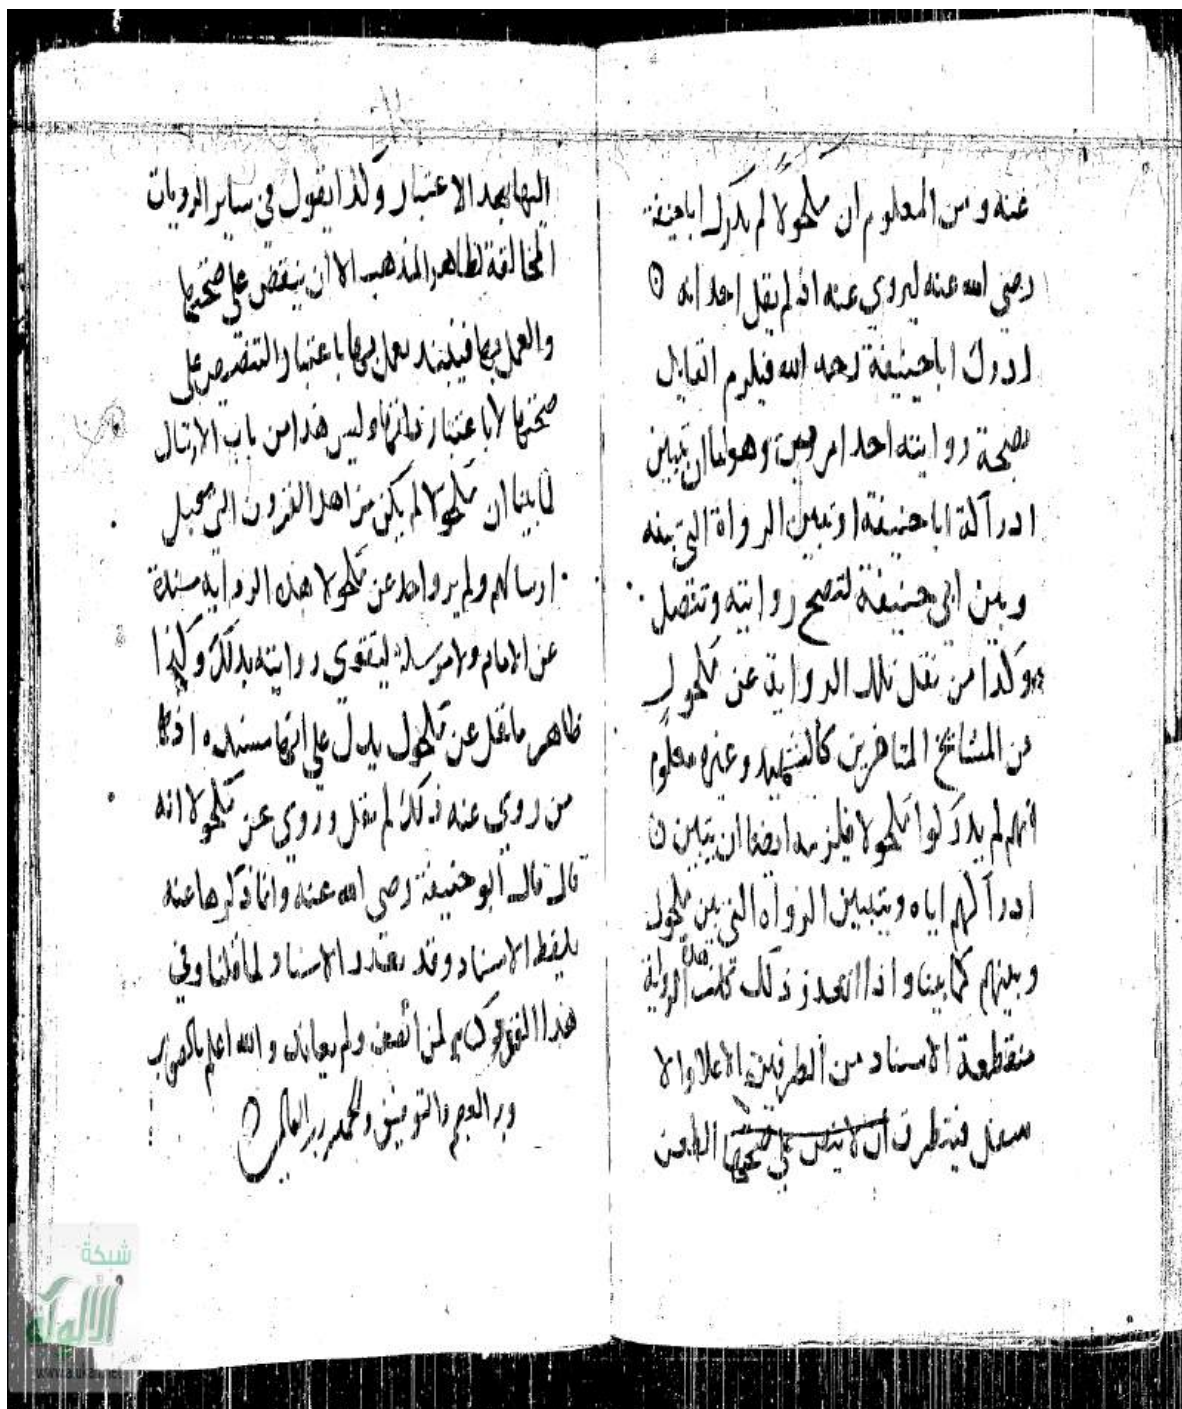 عنه ومن المعلوم ان مكحولا لم يدرك اباحنيفة
رضي الله عنه ليروي عنه اذ لم يقل احد انه
ادرك اباحنيفة رحمه الله فيلزم القايل
بصحة روايته احد امرين وهو اما ان يتبين
ادراكه اباحنيفة او تبين الرواة التي بينه
وبين ابي حنيفة لتصح روايته وتتصل
وكذا من نقل تلك الرواية عن مكحول
من المشايخ المتاخرين كالشهيد وغيره معلوم
انهم لم يدركوا مكحولا فيلزمه ايضا ان يتبين
ادراكهم اياه ويتبين الرواه التي بين مكحول
وبينهم كما بينا واذا تعذر ذلك كانت هذه الرواية
منقطعة الاسناد من الطرفين الاعلا والا
سفل فيتطرق ان لا ينص على صحتها الطعن
اليها بهذا الاعتبار وكذا يقول في ساير الرويات
المخالفة لظاهر المذهب الا ان ينقض على صحتها
والعمل بها فحينئذ يعمل بها باعتبار التنصيص على
صحتها لا باعتبار ذاتها وليس هذا من باب الارسال
لما بينا ان مكحولا لم يكن من اهل القرون التي تقبل
ارسالهم ولم يرو احد عن مكحولا هذه الرواية مسندة
عن الامام ولا مرسلة ليتقوي روايته بذلك وكذا
ظاهر ما نقل عن مكحول يدل علي انها مسنده اذ
من روي عنه ذلك لم يقل وروي عن مكحولا انه
قال قال أبو حنيفة رضي الله عنه وانما ذكرها عنه
بلفظ الاسناد وقد تعذر الاسناد لما قلنا وفي
هذا القدر كفاية لمن أنصف ولم يعاند والله اعلم بالصواب
وبه العصمة والتوفيق والحمد لله رب العالمين
شبكة
الألوكة
www.alukah.net